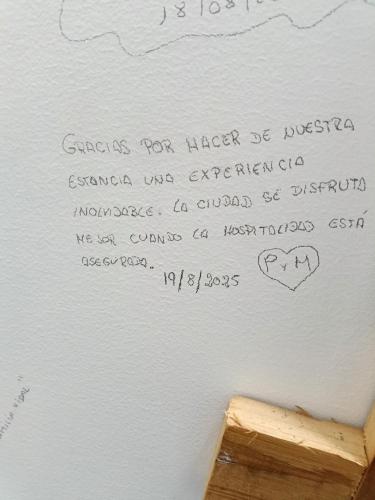 18/08/
GRACIAS POR HACER DE NUESTRA
ESTANCIA UNA EXPERIENCIA
INOLVIDABLE. LA CIUDAD SE DISFRUTA
MEJOR CUANDO LA HOSPITALIDAD ESTÁ
ASEGURADA.
19/8/2025
P y M